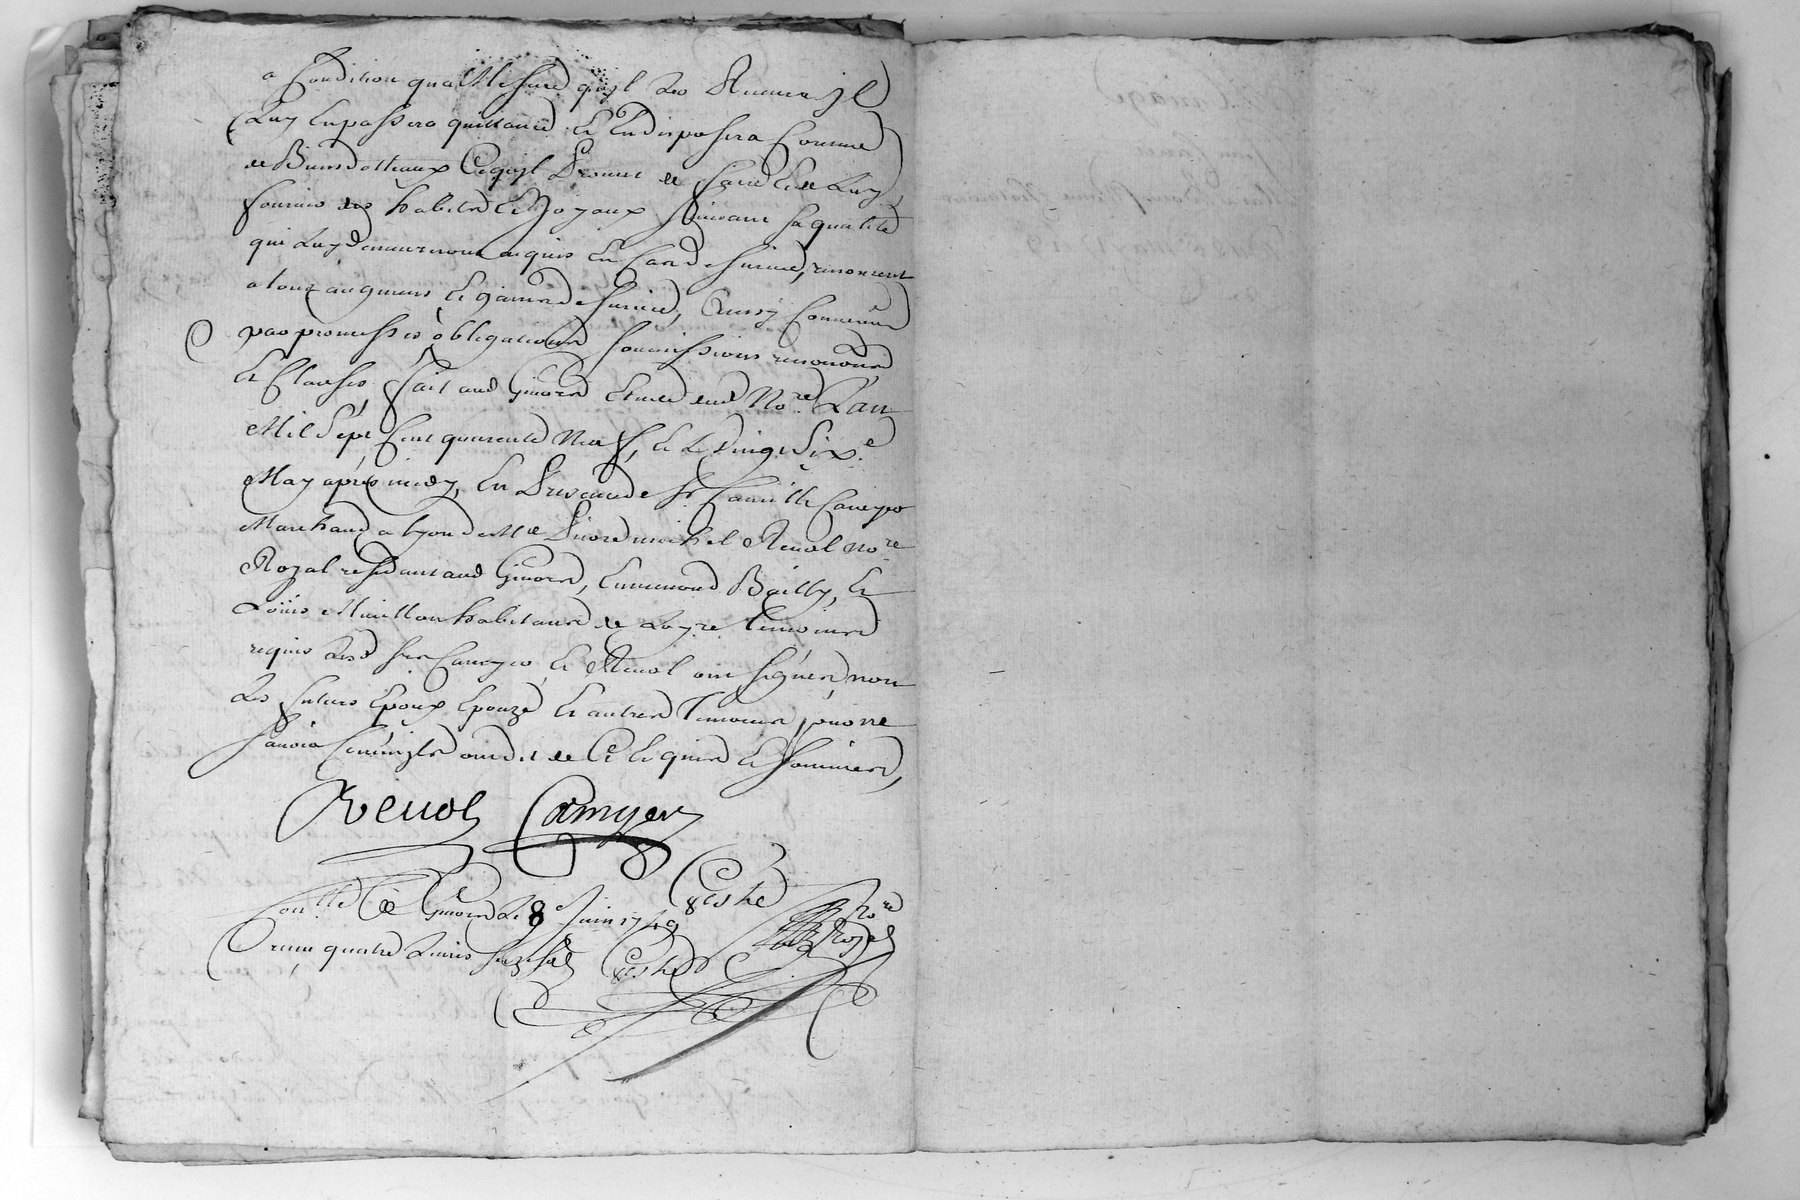 a Condition qua Mesure qu'jl Les Recevra jl
Luy En passera quittance, Et En disposera Comme
de Biens dotteaux Ce qujl Promet de faire Et de Luy
fournir des habits Et Joyaux suivant sa qualité
qui Luy demeureront aquis En Cas de survie, renoncent
a tous augmens Et gains de survie, Ainsy Convenu
par promesses obligations soumissions renoncions
Et Clauses, fait aud Givors Etude dud No.re L'an
Mil Sept Cent quarente Neuf, Et Le Vingt Six.e
May après midy, En Présence de Sr Camille
Marchand a Lyon de Me Pierre michel Revol No.re
Royal residant aud Givors, Ennemond Bailly, Et
Loüis habitans de Temoins
requis Lesd Srs Et Revol ont signés, non
Les futurs Epoux Epouze Et autres Temoins pour ne
savoir Ecrire ont dit de Ce Enquis Et sommés,
Revol Camyer
Con.llé A Givors Le 8e Juin 1749
Reçu quatre Livres
No.re
Royal